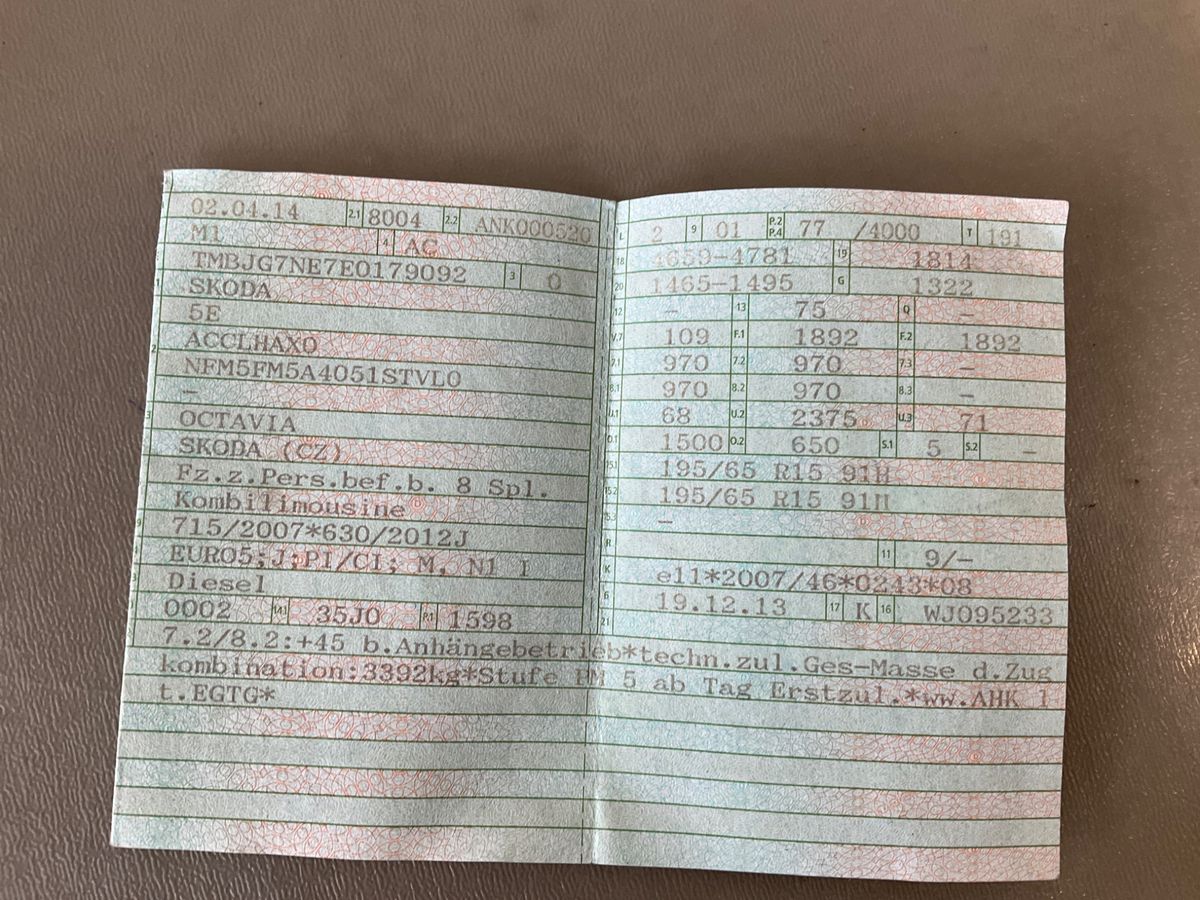 02.04.14 2.1 8004 2.2 ANK000520
M1 4 AC
TMBJG7NE7E0179092 3 0
SKODA
5E
ACCLHAX0
NFM5FM5A4051STVL0
–
OCTAVIA
SKODA (CZ)
Fz.z.Pers.bef.b. 8 Spl.
Kombilimousine
715/2007*630/2012J
EURO5;J;PI/CI; M, N1 I
Diesel
0002 14.1 35J0 P.1 1598
L 2 9 01 P.2 P.4 77 /4000 T 191
18 4659-4781 19 1814
20 1465-1495 G 1322
12 – 13 75 Q –
V.7 109 F.1 1892 F.2 1892
7.1 970 7.2 970 7.3 –
8.1 970 8.2 970 8.3 –
U.1 68 U.2 2375 U.3 71
O.1 1500 O.2 650 S.1 5 S.2 –
15.1 195/65 R15 91H
15.2 195/65 R15 91H
–
R 11 9/–
K e11*2007/46*0243*08
6 19.12.13 17 K 16 WJ095233
21
7.2/8.2:+45 b.Anhängebetrieb*techn.zul.Ges-Masse d.Zug
kombination:3392kg*Stufe PM 5 ab Tag Erstzul.*ww.AHK l
t.EGTG*